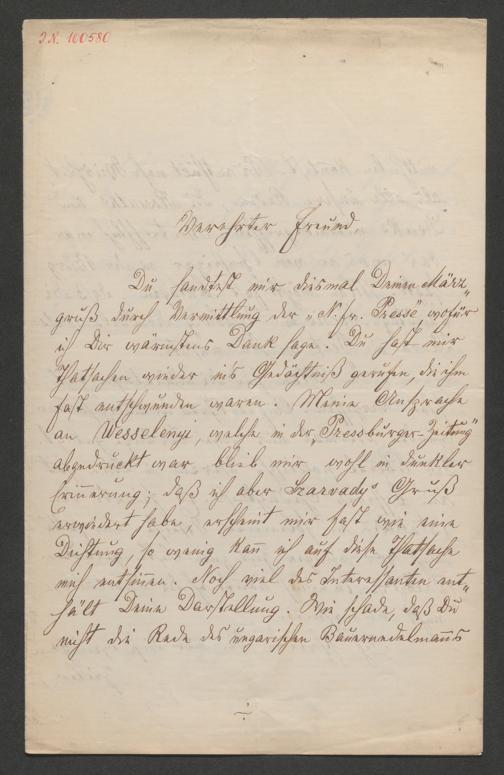 J.N. 100580
Verehrter Freund.
Du sandtest mir diesmal Deinen März-
gruß durch Vermittlung der „N. fr. Presse" wofür
ich Dir wärmstens Dank sage. Du hast mir
Thatsachen wieder ins Gedächtniß gerufen, die ihm
fast entschwunden waren. Meine Ansprache
an Wesselenyi, welche in der „Pressburger-Zeitung"
abgedruckt war blieb mir wohl in dunkler
Erinnerung; daß ich aber Szarvady's Gruß
erwidert habe, erscheint mir fast wie eine
Dichtung, so wenig kan̄ ich auf diese Thatsache
mich entsinnen. Noch viel des Interessanten ent-
hält Deine Darstellung. Wie schade, daß Du
nicht die Rede des ungarischen Bauernedelmanns
./.